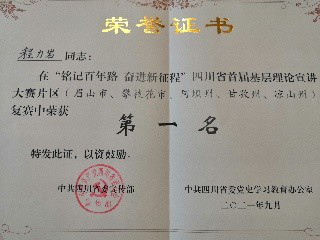 荣誉证书
程力岩 同志：
在“铭记百年路 奋进新征程”四川省首届基层理论宣讲
大赛片区（眉山市、攀枝花市、阿坝州、甘孜州、凉山州）
复赛中荣获
第一名
特发此证，以资鼓励。
中共四川省委宣传部
中共四川省委党史学习教育办公室
二〇二一年九月